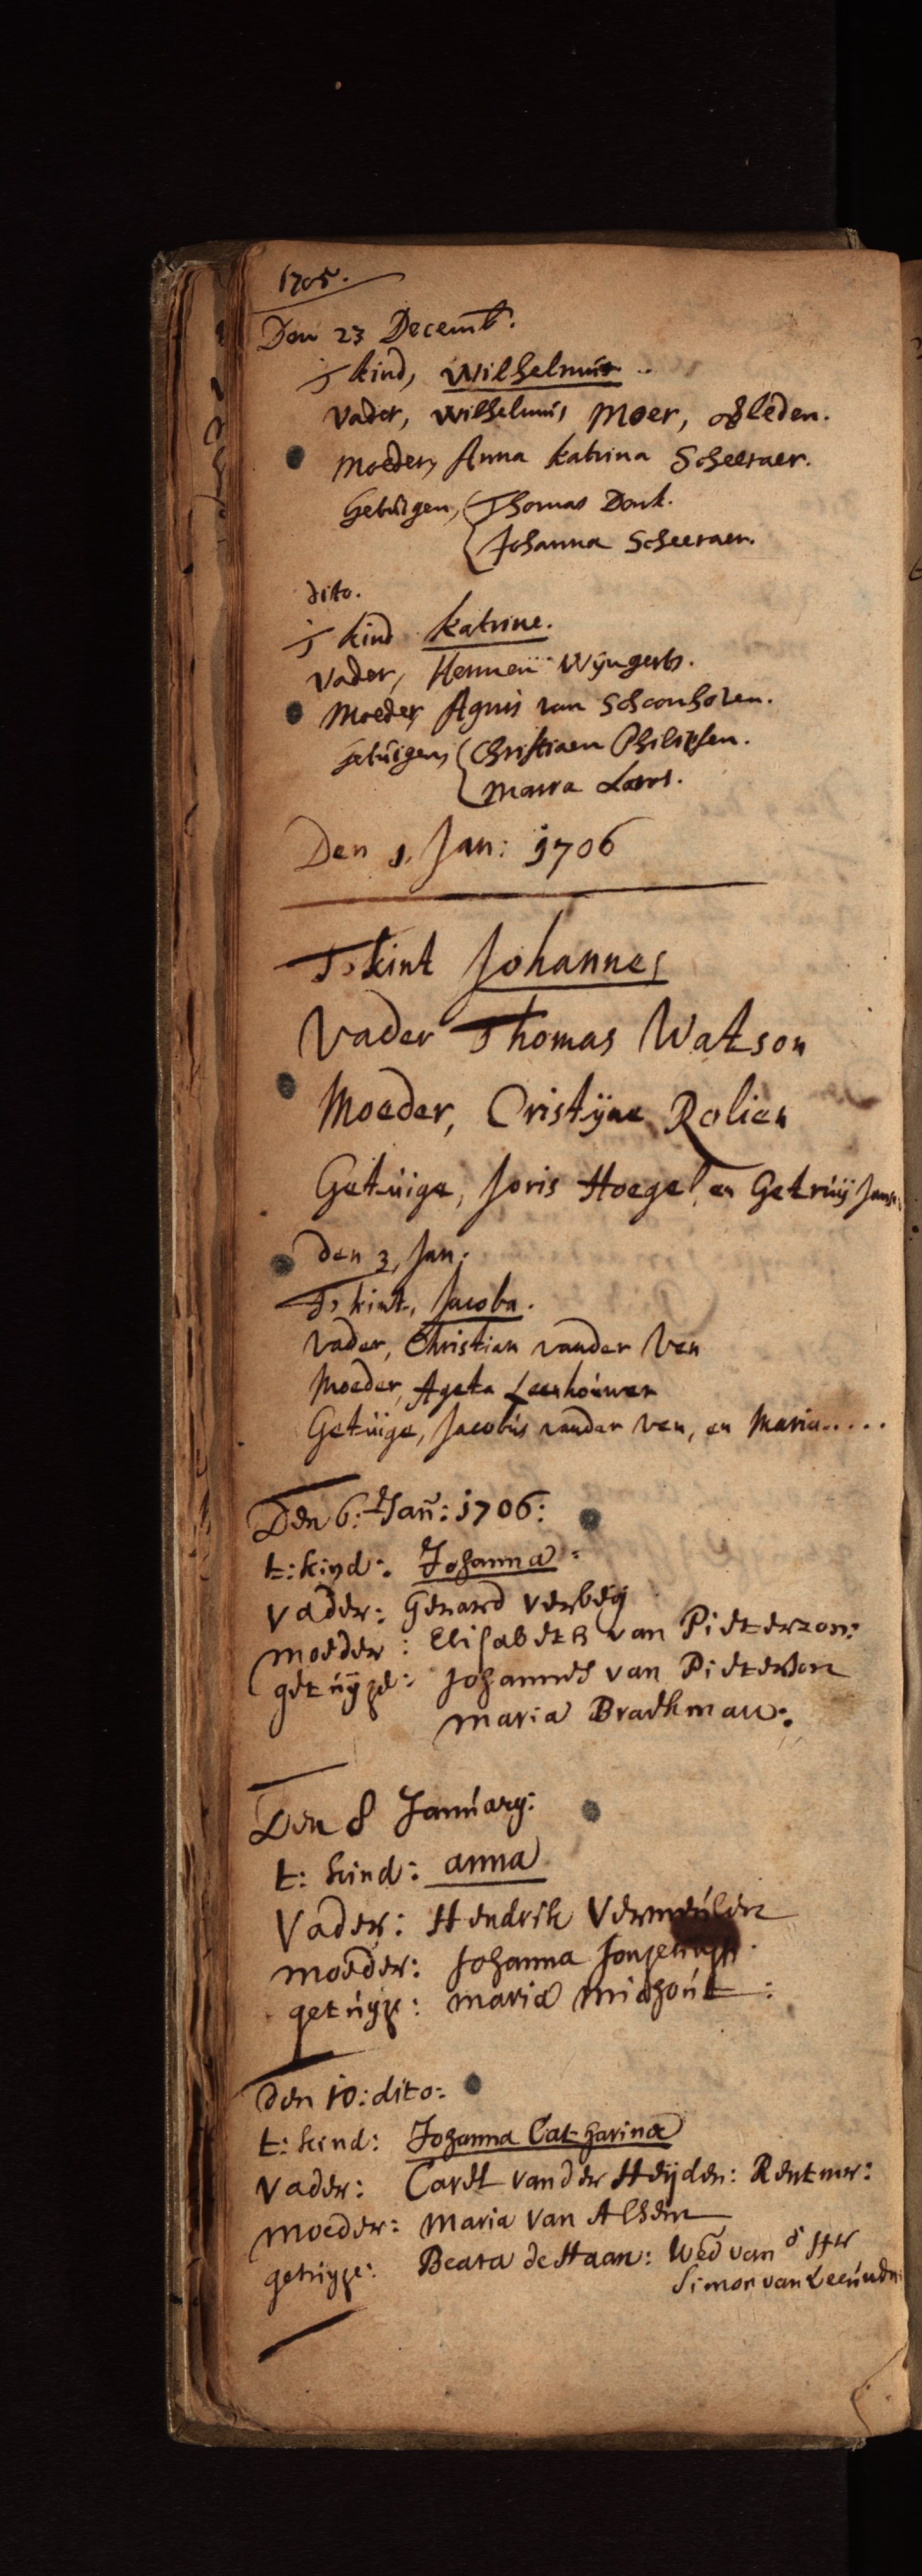 1705.
Den 23 Decemb.
T kind, Wilhelmus
Vader, Wilhelmus Moer, overleden.
Moeder, Anna Katrina Scheeraer.
Getuigen, Thomas Donk.
Johanna Scheeraer.
dito.
T kind Katrine.
Vader, Hermen Wijngerts.
Moeder Agnis van Schoonhoven.
getuigen, Christiaen Philipsen.
Maria
Den 1. Jan: 1706
T, kint Johannes
Vader Thomas Watson
Moeder, Cristijne Rolien
Getuige, Joris Hoegel, en Getruij
den 3, Jan:
T, kint, Jacoba.
Vader, Christian vander Ven
Moeder, Ageta Leenhouwer
Getuige, Jacobus vander Ven, en Maria.....
Den 6: Jan: 1706:
t: kind: Johanna:
Vader: Gerard Verbeij
moeder: Elisabeth van Pieterzon:
getuijge: Johannes van Pieterson
maria Braekman:
Den 8 January:
t: kind: anna
Vader: Hendrik Vermeulen
moeder: Johanna
getuijge: maria
den 10: dito:
t: kind: Johanna Catharina
Vader: Carel vander Heijden: Rentmr:
moeder: Maria van Alsem
getuijge: Beata de Haan: Wed van d Hr
Simon van Leeuwen